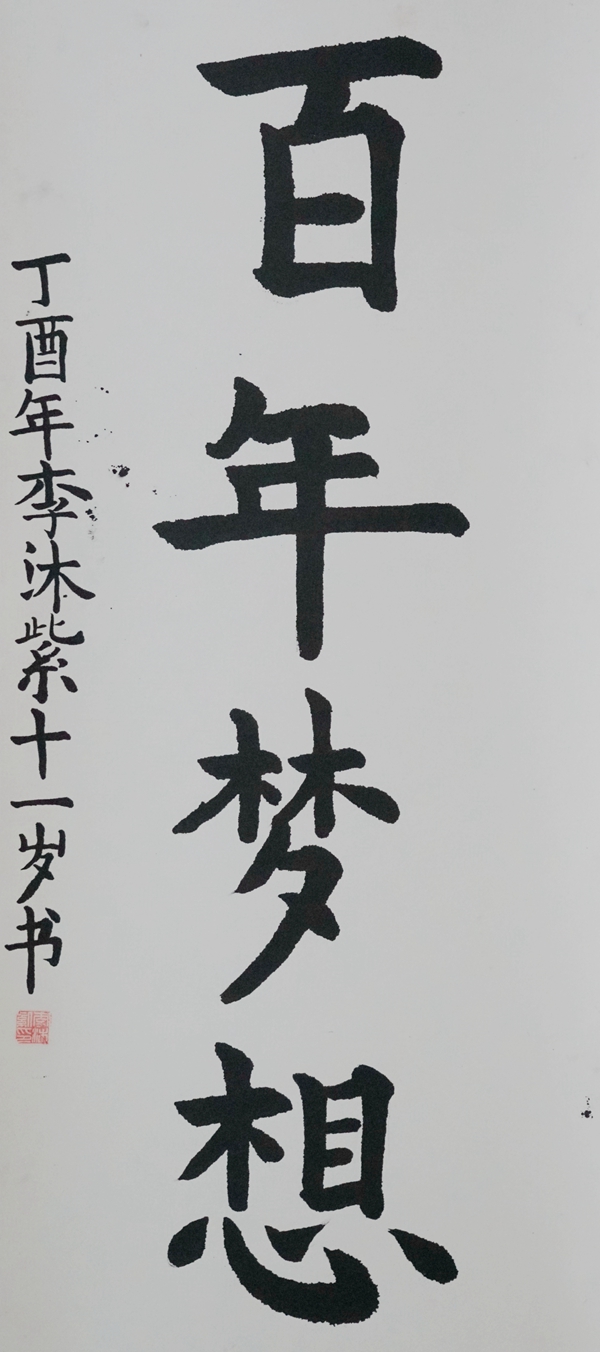 百年梦想
丁酉年李沐紫十一岁书